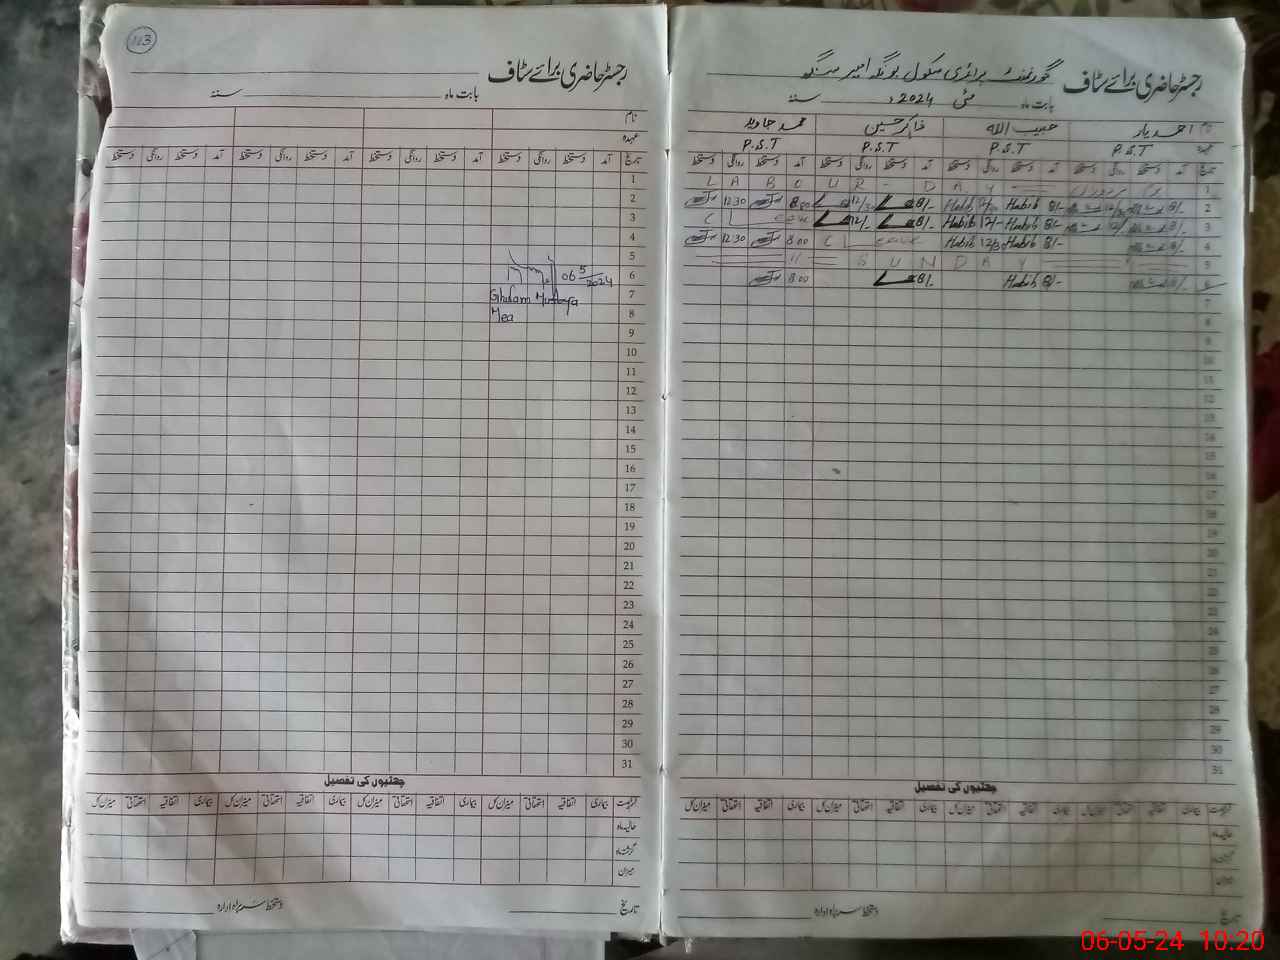 113
رجسٹر حاضری برائے سٹاف
بابت ماہ سنۂ
نام
عہدہ
تاریخ آمد دستخط روانگی دستخط آمد دستخط روانگی دستخط آمد دستخط روانگی دستخط آمد دستخط روانگی دستخط
1
2
3
4
5
6
7
8
9
10
11
12
13
14
15
16
17
18
19
20
21
22
23
24
25
26
27
28
29
30
31
06 5/2024
Ghulam
Mea
چھٹیوں کی تفصیل
بیماری اتفاقیہ استحقاقی میزان کل بیماری اتفاقیہ استحقاقی میزان کل بیماری اتفاقیہ استحقاقی میزان کل بیماری اتفاقیہ استحقاقی میزان کل
حالیہ ماہ
گزشتہ ماہ
میزان
تاریخ دستخط سربراہ ادارہ
رجسٹر حاضری برائے سٹاف گورنمنٹ پرائمری سکول بونگہ امیر سنگھ
بابت ماہ مئی سنۂ 2024ء
نام احمد یار حبیب اللہ ذاکر حسین محمد جاوید
عہدہ P.S.T P.S.T P.S.T P.S.T
تاریخ آمد دستخط روانگی دستخط آمد دستخط روانگی دستخط آمد دستخط روانگی دستخط آمد دستخط روانگی دستخط
1 LABOUR - DAY
2 12:30 8:00 12/30 8/- Habib 12/30 Habib 8/- 12/30 8/-
3 C L eave 12/- 8/- Habib 12/- Habib 8/- 12/- 8/-
4 12:30 8:00 C L eave Habib 12/30 Habib 8/- 8/-
5 SUNDAY
6 8:00 8/- Habib 8/- 8/-
7
8
9
10
11
12
13
14
15
16
17
18
19
20
21
22
23
24
25
26
27
28
29
30
31
چھٹیوں کی تفصیل
بیماری اتفاقیہ استحقاقی میزان کل بیماری اتفاقیہ استحقاقی میزان کل بیماری اتفاقیہ استحقاقی میزان کل بیماری اتفاقیہ استحقاقی میزان کل
حالیہ ماہ
گزشتہ ماہ
میزان
تاریخ دستخط سربراہ ادارہ
06-05-24 10:20